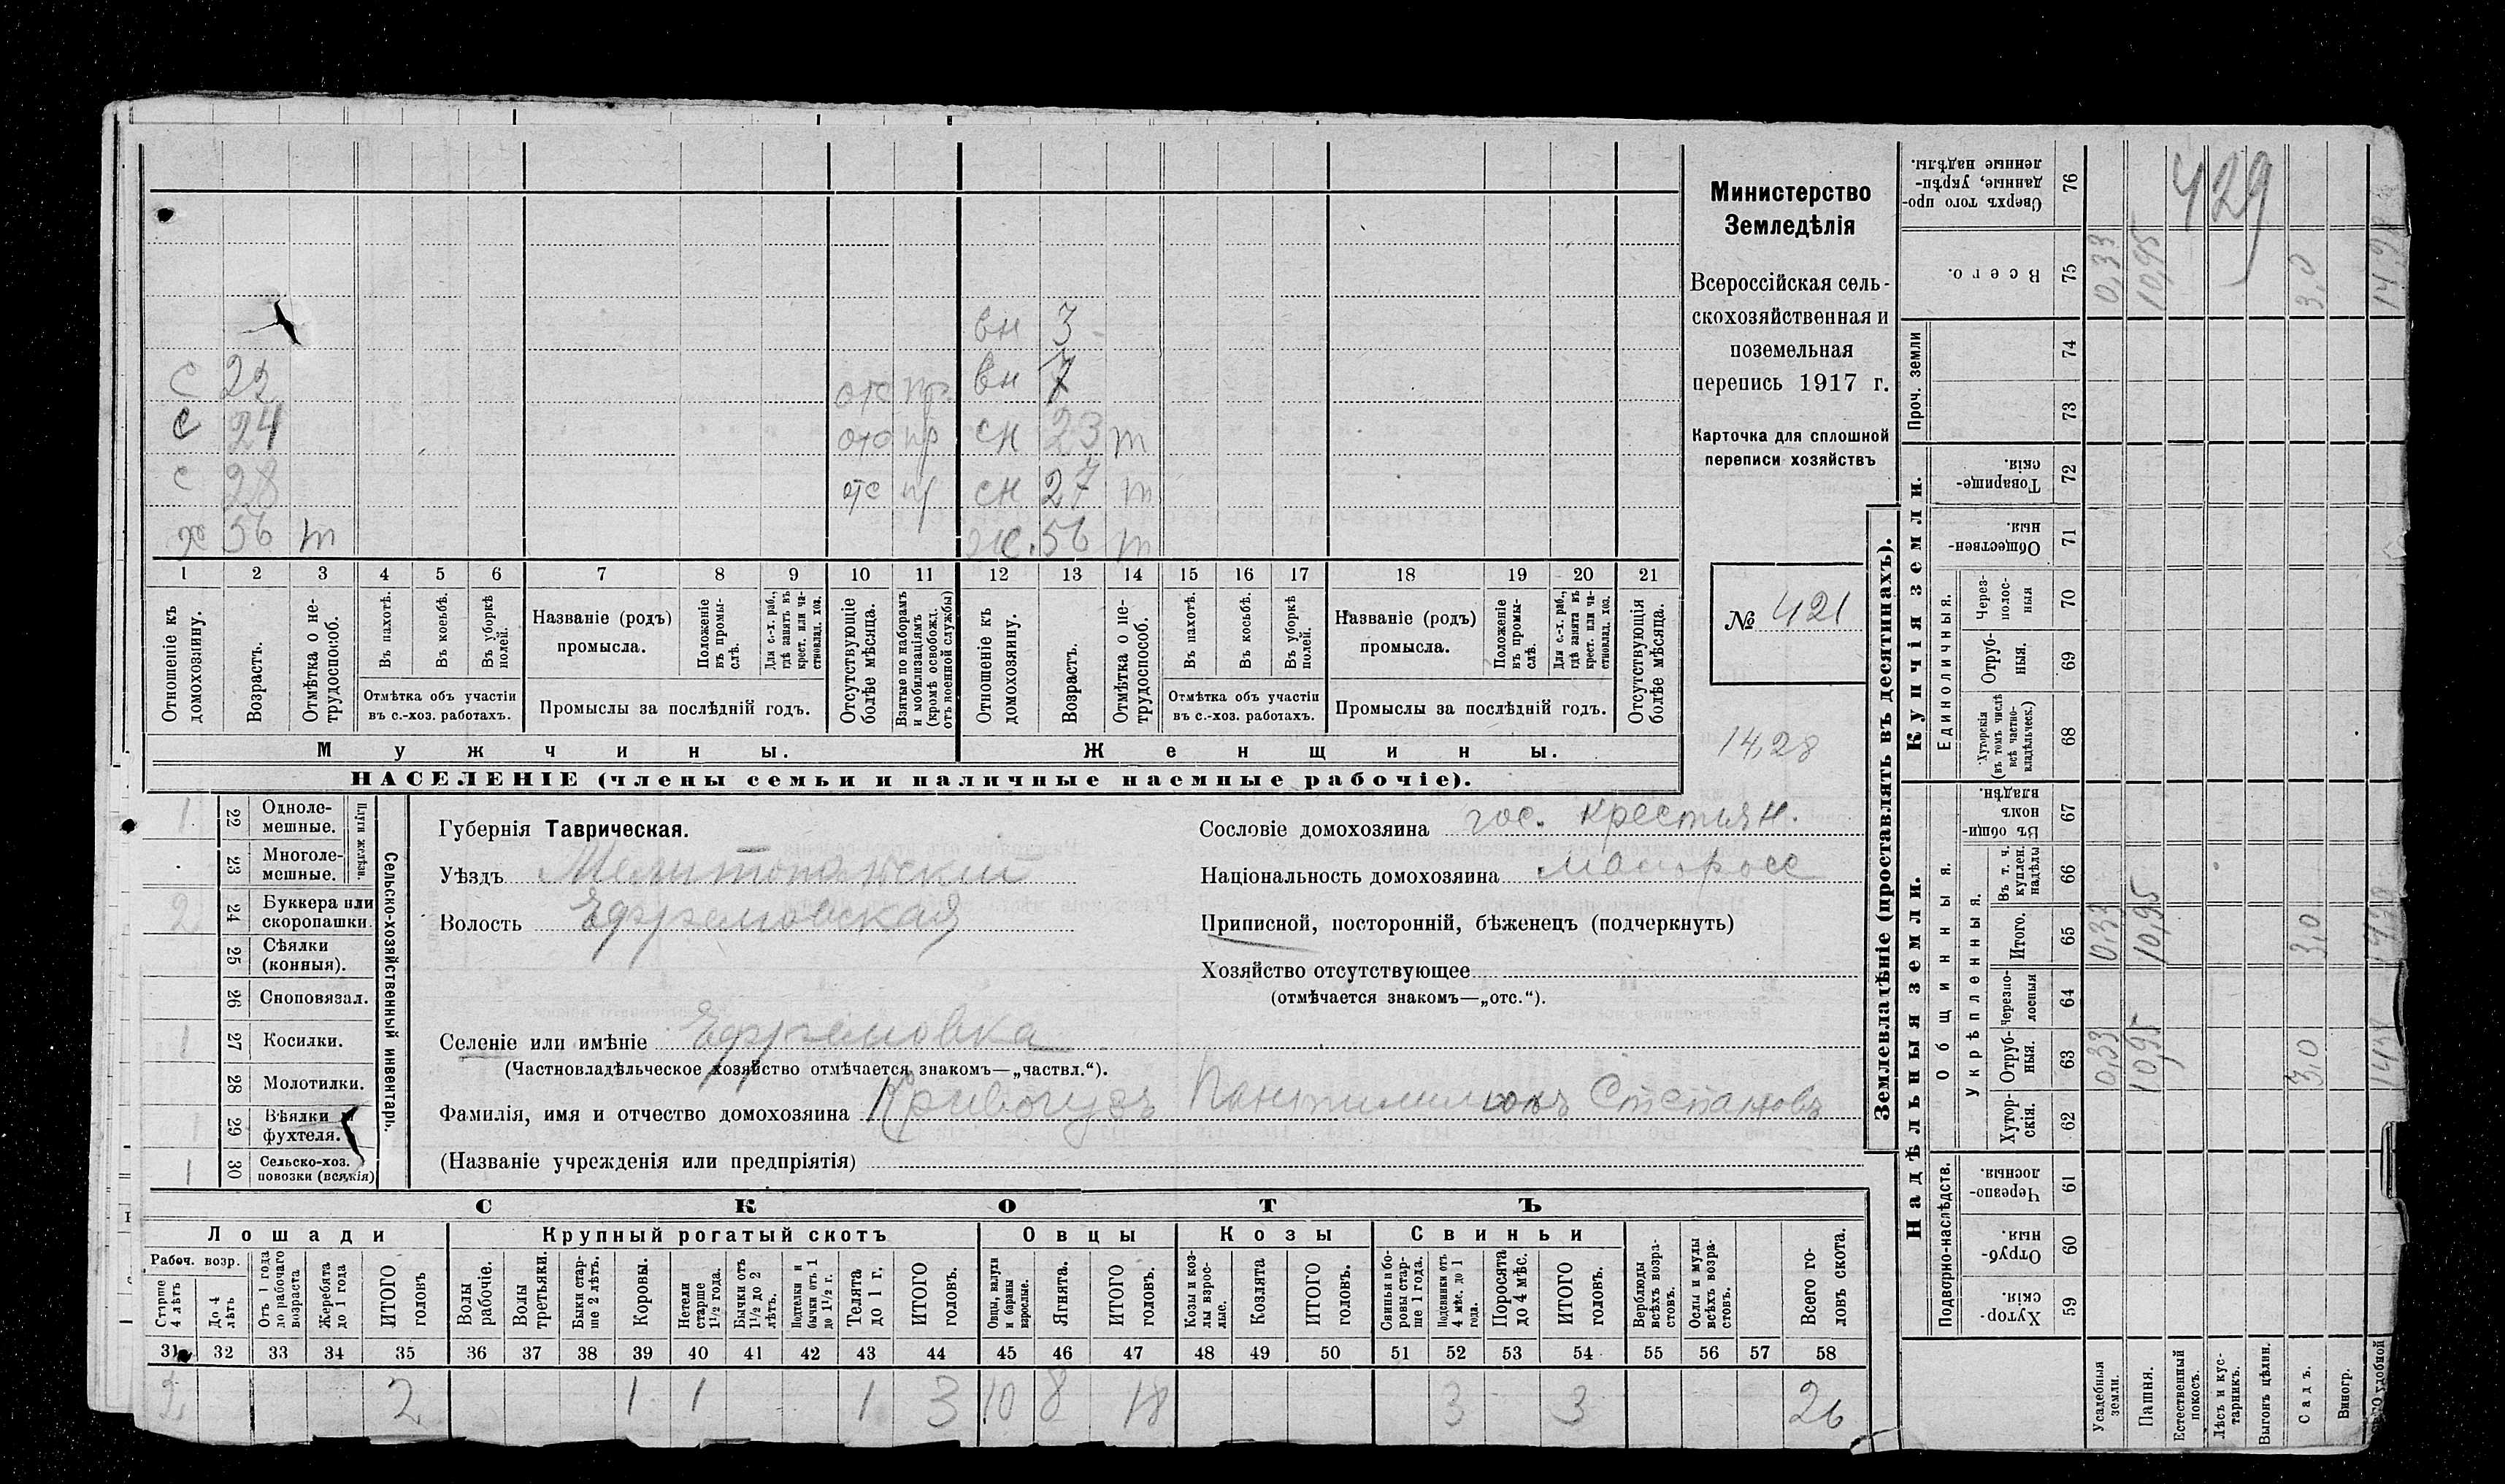 Министерство
Земледѣлія
Всероссійская сель-
скохозяйственная и
поземельная
перепись 1917 г.
Карточка для сплошной
переписи хозяйствъ
№ 421
14,28
вн 3
с 22 отс пр вн 7
с 24 отс пр сн 23 т
с 28 отс пр сн 27 т
х 56 т ж. 56 т
1 2 3 4 5 6 7 8 9 10 11 12 13 14 15 16 17 18 19 20 21
Отношеніе къ домохозяину.
Возрастъ.
Отмѣтка о не-трудоспособ.
Въ пахотѣ.
Въ косьбѣ.
Въ уборкѣ полей.
Отмѣтка объ участіи
въ с.-хоз. работахъ.
Названіе (родъ)
промысла.
Положеніе въ промы-слѣ.
Для с.-х. раб., гдѣ занятъ въ крест. или ча-стновлад. хоз.
Промыслы за послѣдній годъ.
Отсутствующіе болѣе мѣсяца.
Взятые по наборамъ и мобилизаціямъ (кромѣ освобожд. отъ военной службы)
Отношеніе къ домохозяину.
Возрастъ.
Отмѣтка о не-трудоспособ.
Въ пахотѣ.
Въ косьбѣ.
Въ уборкѣ полей.
Отмѣтка объ участіи
въ с.-хоз. работахъ.
Названіе (родъ)
промысла.
Положеніе въ промы-слѣ.
Для с.-х. раб., гдѣ занята въ крест. или ча-стновлад. хоз.
Промыслы за послѣдній годъ.
Отсутствующія болѣе мѣсяца.
Мужчины. Женщины.
НАСЕЛЕНІЕ (члены семьи и наличные наемные рабочіе).
Сельско-хозяйственный инвентарь.
Плуги желѣзн.
1 22 Одноле-мешные.
23 Многоле-мешные.
2 24 Буккера или скоропашки
25 Сѣялки (конныя).
26 Сноповязал.
1 27 Косилки.
28 Молотилки.
1 29 Вѣялки и фухтеля.
1 30 Сельско-хоз. повозки (всякія)
Губернія Таврическая.
Уѣздъ Мелитопольский
Волость Ефремовская
Селеніе или имѣніе Ефремовка
(Частновладѣльческое хозяйство отмѣчается знакомъ—„частвл.“).
Фамилія, имя и отчество домохозяина Кривогузъ Пантилимонъ Степановъ
(Названіе учрежденія или предпріятія)
Сословіе домохозяина гос. крестьян.
Національность домохозяина малоросс
Приписной, посторонній, бѣженецъ (подчеркнуть)
Хозяйство отсутствующее
(отмѣчается знакомъ—„отс.“).
СКОТЪ
Лошади Крупный рогатый скотъ Овцы Козы Свиньи
Рабоч. возр.
Старше 4 лѣтъ
До 4 лѣтъ
Отъ 1 года до рабочаго возраста
Жеребята до 1 года
ИТОГО головъ
Волы рабочіе.
Волы третьяки.
Быки стар-ше 2 лѣтъ.
Коровы.
Нетели старше 1½ года.
Бычки отъ 1½ до 2 лѣтъ.
Подтелки и бычки отъ 1 до 1½ г.
Телята до 1 г.
ИТОГО головъ.
Овцы, валухи и бараны взрослые.
Ягнята.
ИТОГО головъ.
Козы и коз-лы взрос-лые.
Козлята
ИТОГО головъ.
Свиньи и бо-ровы стар-ше 1 года.
Подсвинки отъ 4 мѣс. до 1 года.
Поросята до 4 мѣс.
ИТОГО головъ.
Верблюды всѣхъ возра-стовъ.
Ослы и мулы всѣхъ возра-стовъ.
Всего го-ловъ скота.
31 32 33 34 35 36 37 38 39 40 41 42 43 44 45 46 47 48 49 50 51 52 53 54 55 56 57 58
2 2 1 1 1 3 10 8 18 3 3 26
Землевладѣніе (проставлять въ десятинахъ).
Надѣльныя земли. Купчія земли. Проч. земли
Подворно-наслѣдств.
Общинныя.
Укрѣпленныя.
Единоличныя.
429
Сверхъ того про-данные, укрѣп-ленные надѣлы. 76
Всего. 75 0,33 10,95 3,0
74
73
Товарище-скія. 72
Обществен-ныя. 71
Через-полос-ныя 70
Отруб-ныя. 69
Хуторскія (въ томъ числѣ всѣ частно-владѣльческ.) 68
Въ общин-номъ владѣн. 67
Въ т. ч. куплен. надѣлы 66
Итого. 65 0,33 10,95 3,0
Черезпо-лосныя 64
Отруб-ныя. 63 0,33 10,95 3,0
Хутор-скія. 62
Черезпо-лосныя 61
Отруб-ныя. 60
Хутор-скія. 59
Усадебныя земли.
Пашня.
Естественный покосъ.
Лѣсъ и кус-тарникъ.
Выгонъ цѣлин.
Садъ.
Виногр.